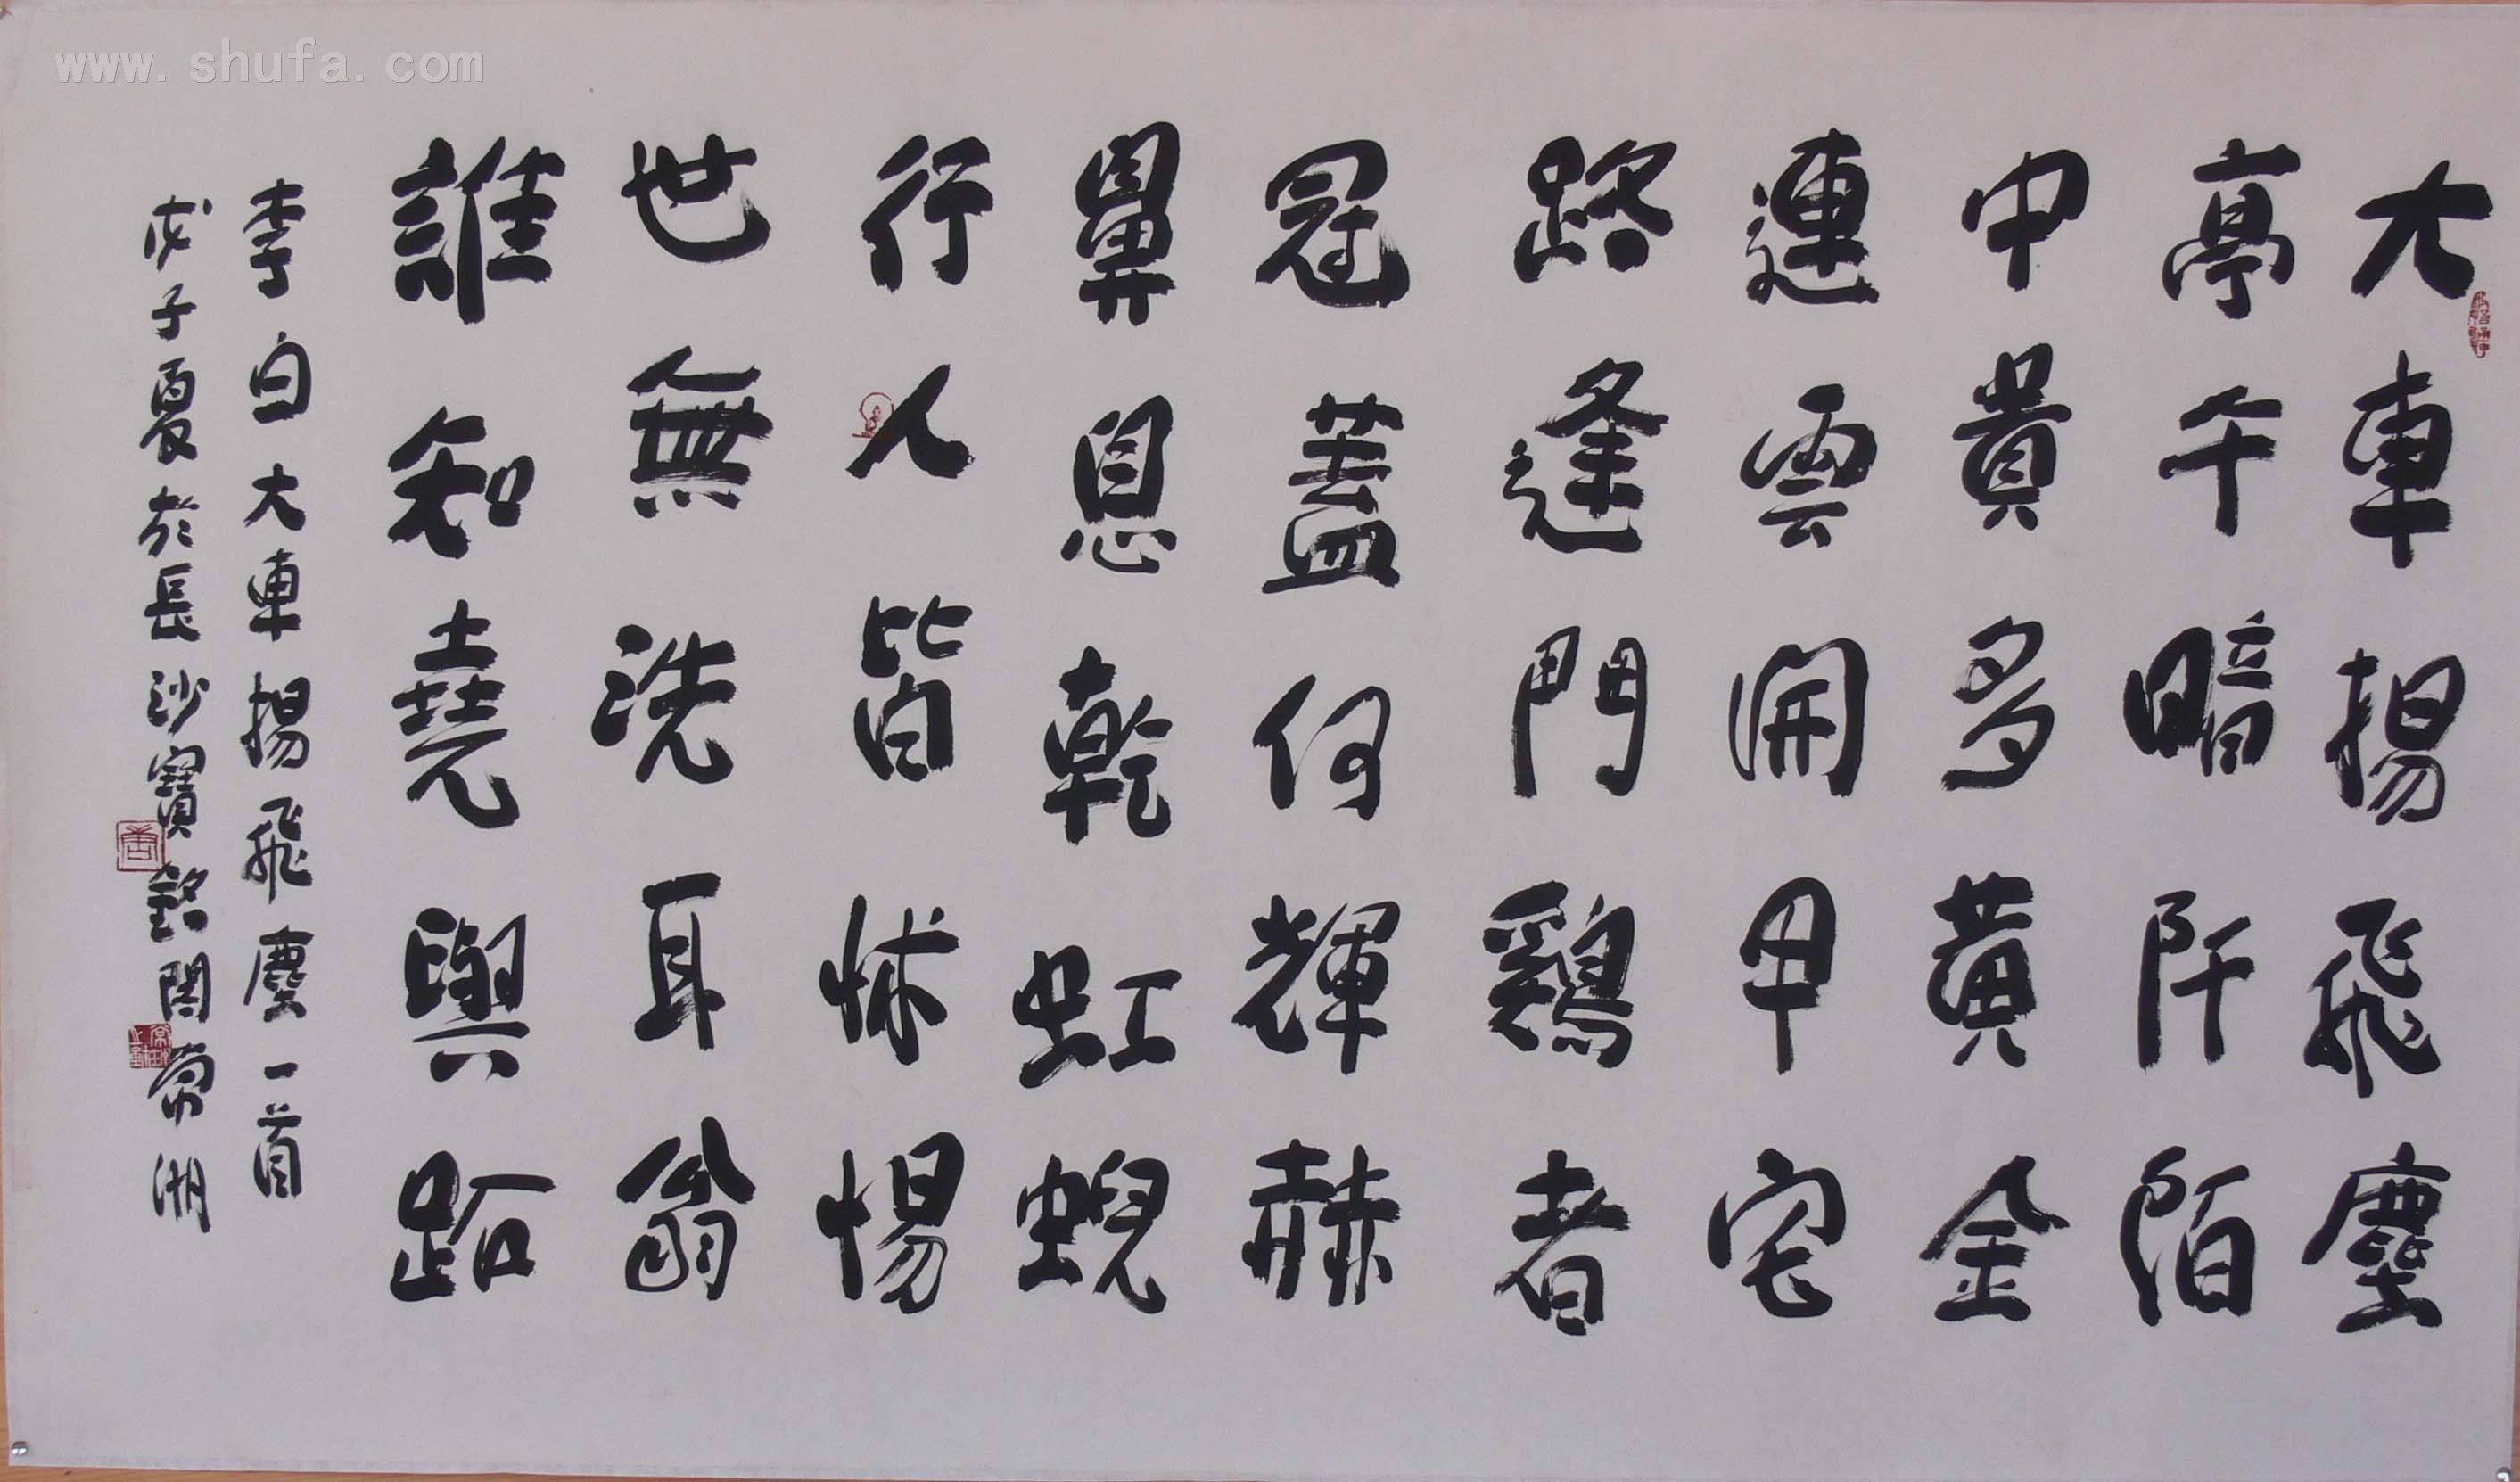 大車揚飛塵
亭午暗阡陌
中貴多黃金
連雲開甲宅
路逢鬥鷄者
冠蓋何輝赫
鼻息乾虹蜺
行人皆怵惕
世無洗耳翁
誰知堯與跖
李白大車揚飛塵一首
戊子夏於長沙寶銘閣 湘
www.shufa.com